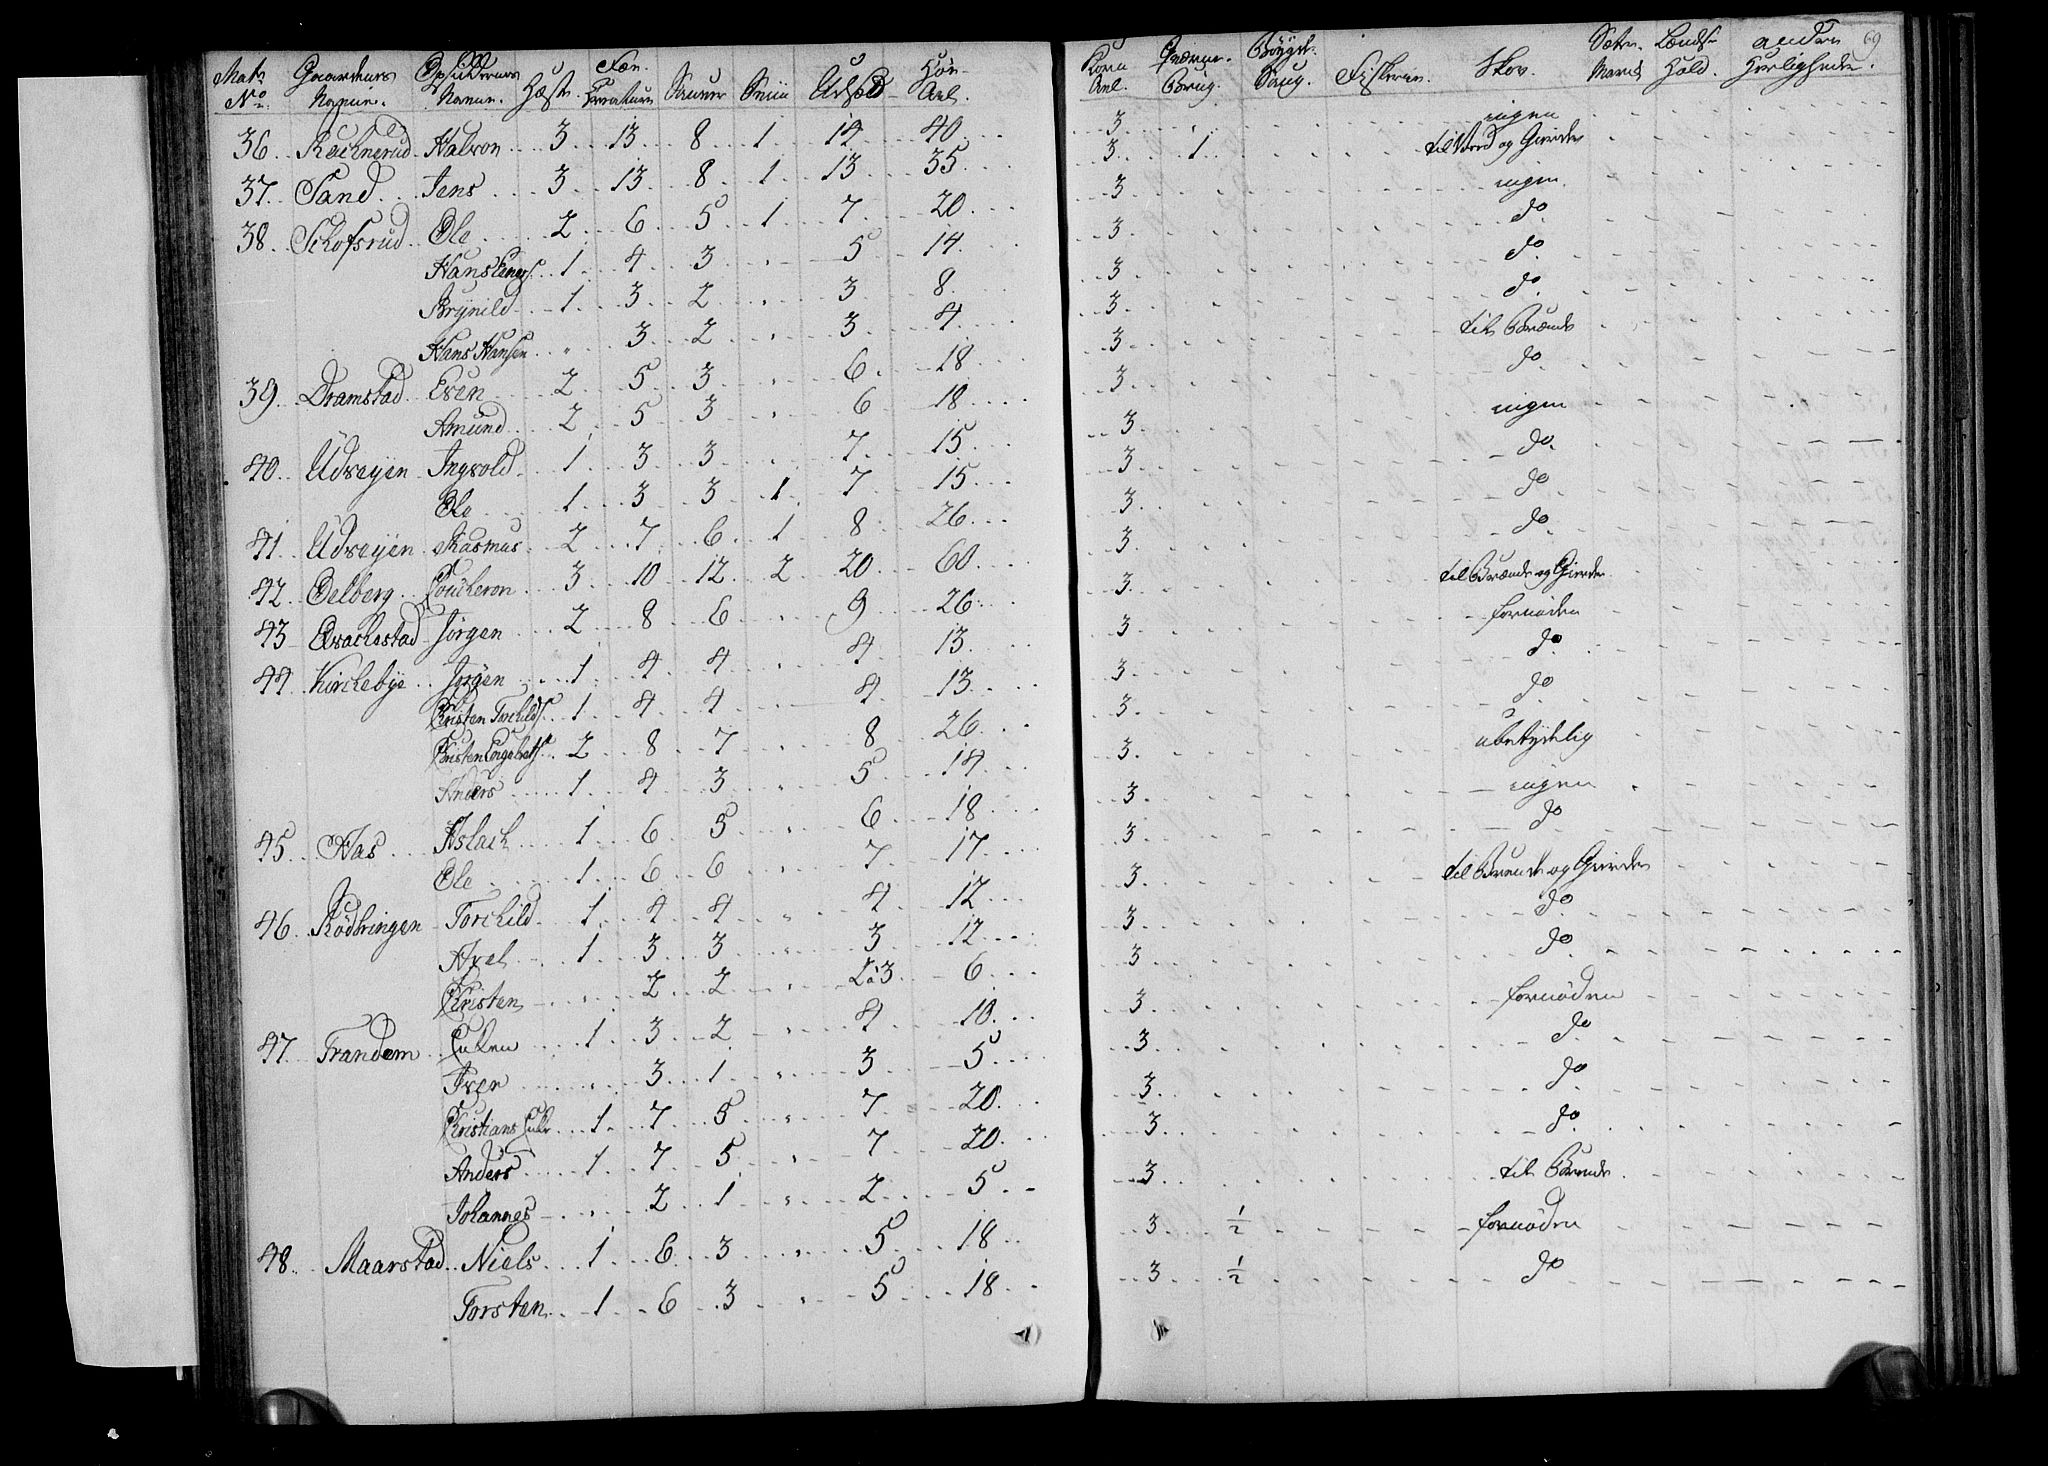 Matr: No Gaardenes Navne. Opsiddernes Navne. Hæste. Fæe Creature Sauver Sviin Udsæd Høe Avl. Korn Avl. Qværne Brug. Bøygde Saug. Fiskerie. Skov. Sæter Havn Lands Hold. anden Herlighede. 69
36. Rachnerud Halvor 3 13 8 1 14 40 3 ingen
37. Sand Jens 3 13 8 1 13 35 3 1 til Ved og Gierder
38. Schofsrud Ole 2 6 5 1 7 20 3 ingen
Hans 1 4 3 " 5 14 3 do
Brynild 1 3 2 " 3 8 3 do
Hans Hansen " 3 2 " 3 4 3 do
39 Dramstad Even 2 5 3 " 6 18 3 til Brænde
Amund 2 5 3 " 6 18 3 do
40 Udvejen Ingvold 1 3 3 " 7 15 3 ingen
Ole 1 3 3 1 7 15 3 do
41 Udvejen Rasmus 2 7 6 1 8 26 3 do
42 Delberg Coucheron 3 10 12 2 20 60 3 do
43 Qvachestad Jørgen 2 8 6 " 9 26 3 til Brænde og Gierder
44 Kirchebye Jørgen 1 4 4 " 4 13 3 fornøden
Kristen Torchilds. 1 4 4 " 4 13 3 do
Kristen Engebrets. 2 8 7 " 8 26 3 do
Anders 1 4 3 " 5 14 3 ubetydelig
45 Aas Aslach 1 6 5 " 6 18 3 ingen
Ole 1 6 6 " 7 17 3 do
46. Rødhringen Torchild 1 4 4 " 4 12 3 til Brende og Gierder
Axel 1 3 3 " 3 12 3 do
Kristen " 2 2 " 2 a 3 6 3 do
47 Trandem 1 3 2 " 4 10 3 fornøden
Iver " 3 1 " 3 5 3 do
Kristians 1 7 5 " 7 20 3 do
Anders 1 7 5 " 7 20 3 do
Johannes " 2 1 " 2 5 3 til Brende
48 Maarstad Niels 1 6 3 " 5 18 3 1/2 fornøden
Torsten 1 6 3 " 5 18 3 1/2 do